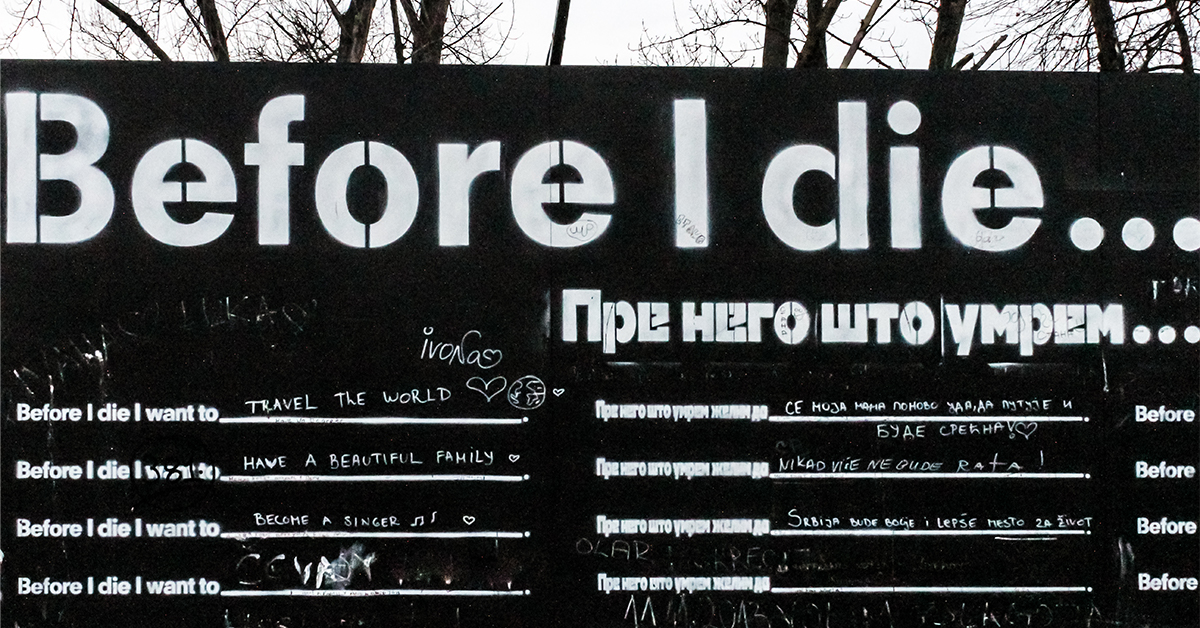 Before I die...
Пре него што умрем...
ivoNa
Before I die I want to TRAVEL THE WORLD.
Before I die I want to HAVE A BEAUTIFUL FAMILY.
Before I die I want to BECOME A SINGER.
Before I die I want to.
Пре него што умрем желим да СЕ МОЈА МАМА ПОНОВО УДА, ДА ПУТУЈЕ И.
БУДЕ СРЕЋНА!
Пре него што умрем желим да NIKAD VIŠE NE BUDE RATA!.
Пре него што умрем желим да SRBIJA BUDE BOLJE i LEPŠE MESTO ZA ŽIVOT.
Пре него што умрем желим да.
Before
Before
Before
Before